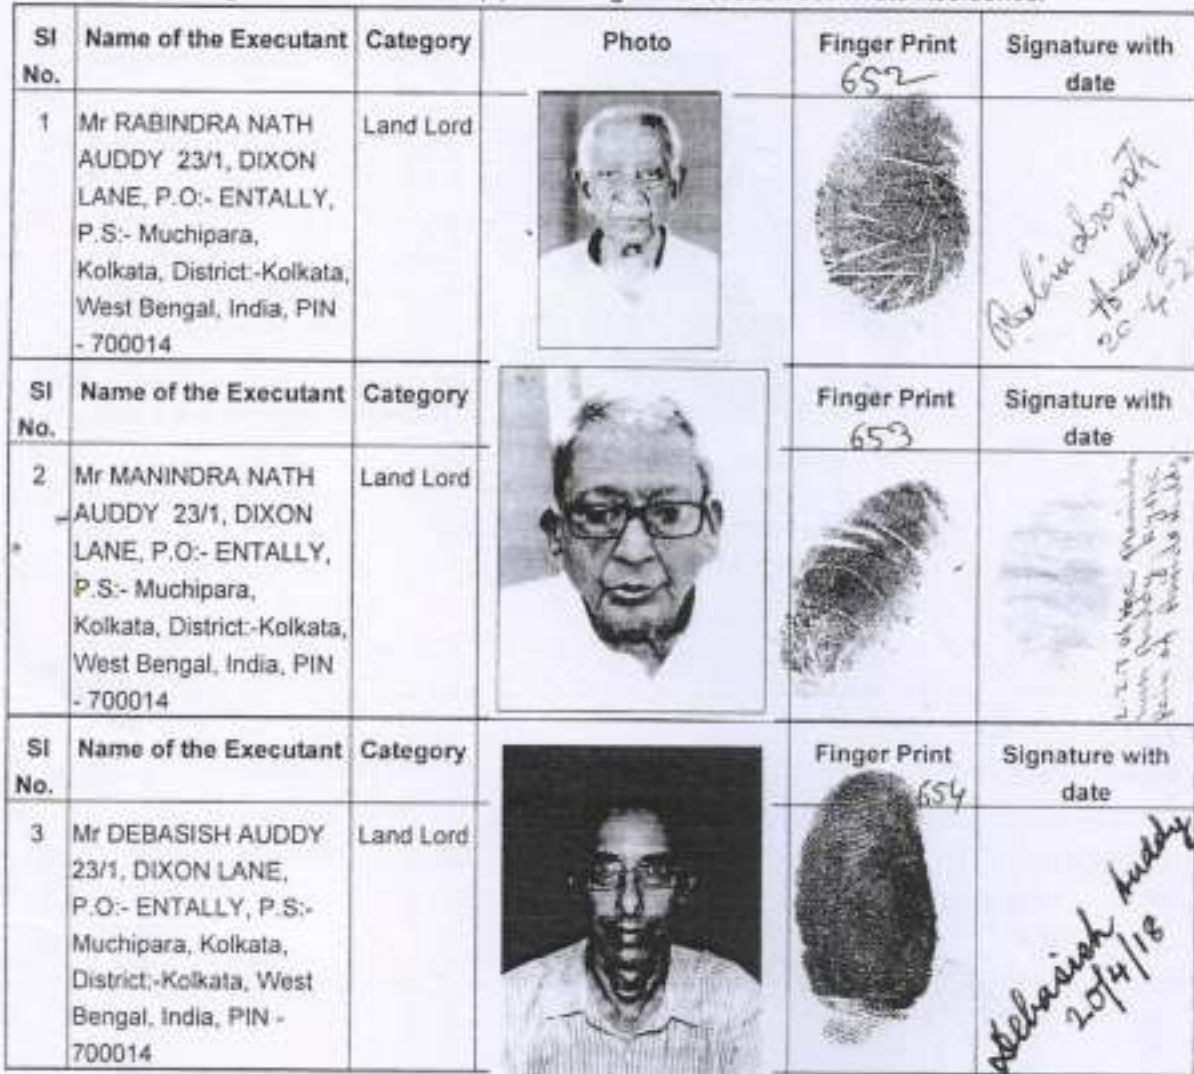 Sl No.
Name of the Executant
Category
Photo
Finger Print
Signature with date
652
1
Mr RABINDRA NATH
AUDDY 23/1, DIXON
LANE, P.O:- ENTALLY,
P.S:- Muchipara,
Kolkata, District:-Kolkata,
West Bengal, India, PIN
- 700014
Land Lord
Sl No.
Name of the Executant
Category
Finger Print
Signature with date
653
2
Mr MANINDRA NATH
AUDDY 23/1, DIXON
LANE, P.O:- ENTALLY,
P.S:- Muchipara,
Kolkata, District:-Kolkata,
West Bengal, India, PIN
- 700014
Land Lord
Sl No.
Name of the Executant
Category
Finger Print
Signature with date
654
3
Mr DEBASISH AUDDY
23/1, DIXON LANE,
P.O:- ENTALLY, P.S:-
Muchipara, Kolkata,
District:-Kolkata, West
Bengal, India, PIN -
700014
Land Lord
Debasish Auddy
20/4/18